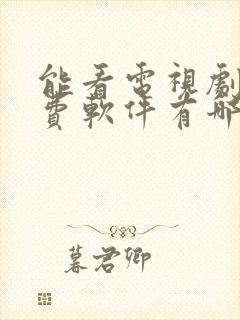 能看電視劇
費軟件有哪
暮君卿